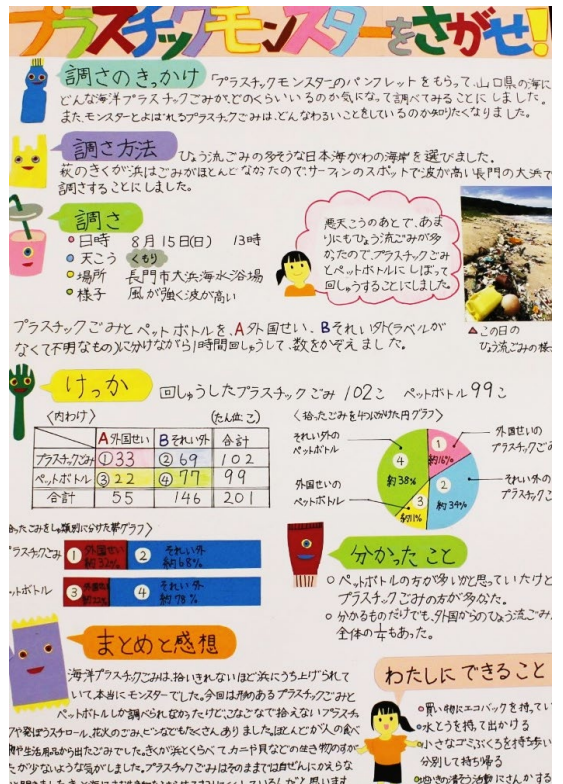 プラスチックモンスターをさがせ!
調さのきっかけ
「プラスチックモンスター」のパンフレットをもらって、山口県の海に
どんな海洋プラスチックごみが、どのくらいいるのか気になって調べてみることにしました。
また、モンスターとよばれるプラスチックごみは、どんなわるいことをしているのか知りたくなりました。
調さ方法
ひょう流ごみの多そうな日本海がわの海岸を選びました。
萩のきくが浜はごみがほとんどなかったので、サーフィンのスポットで波が高い長門の大浜で
調さすることにしました。
調さ
日時 8月15日(日) 13時
天こう くもり
場所 長門市大浜海水浴場
様子 風が強く波が高い
悪天こうのあとで、あま
りにもひょう流ごみが多
かったので、プラスチックごみ
とペットボトルにしぼって
回しゅうすることにしました。
▲この日の
ひょう流ごみの様
プラスチックごみとペットボトルを、A外国せい、Bそれい外(ラベルが
なくて不明なもの)に分けながら1時間回しゅうして、数をかぞえました。
けっか
回しゅうしたプラスチックごみ 102こ ペットボトル 99こ
〈内わけ〉 (たん位:こ)
A外国せい Bそれい外 合計
プラスチックごみ ①33 ②69 102
ペットボトル ③22 ④77 99
合計 55 146 201
〈拾ったごみを4つに分けた円グラフ〉
それい外の
ペットボトル
外国せいの
ペットボトル
外国せいの
プラスチックご
それい外の
プラスチックご
① 約16%
② 約34%
③ 約11%
④ 約38%
ったごみをしゅ類別に分けた帯グラフ〉
プラスチックごみ ① 外国せい 約32% ② それい外 約68%
ットボトル ③ 外国せい 約22% ④ それい外 約78%
分かったこと
○ペットボトルの方が多いかと思っていたけど
プラスチックごみの方が多かった。
○分かるものだけでも、外国からのひょう流ごみ
全体の1/4もあった。
まとめと感想
海洋プラスチックごみは、拾いきれないほど浜にうち上げられて
いて、本当にモンスターでした。今回は形のあるプラスチックごみと
ペットボトルしか調べられなかったけど、こなごなで拾えないプラスチ
クや発ぽうスチロール、花火のごみ、ビンなどもたくさんありました。ほとんどが人の食べ
物や生活用品から出たごみでした。きくが浜とくらべて、カニや貝などの生き物のすか
たが少ないような気がしました。プラスチックごみはそのままでは自然にかえらな
わたしにできること
○買い物にエコバックを持ってい
○水とうを持って出かける
○小さなゴミぶくろを持ち歩い
分別して持ち帰る